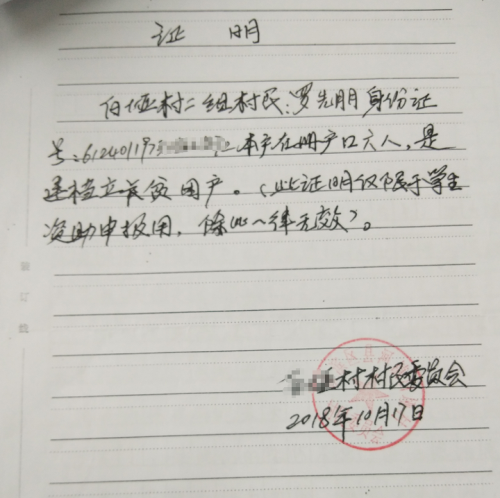 证 明
白伍村二组村民:罗先朋身份证
号:612401197 本户在册户口六人,是
建档立卡贫困户。(此证明仅限于学生
资助申报用,除此一律无效)。
伍村村民委员会
2018年10月17日